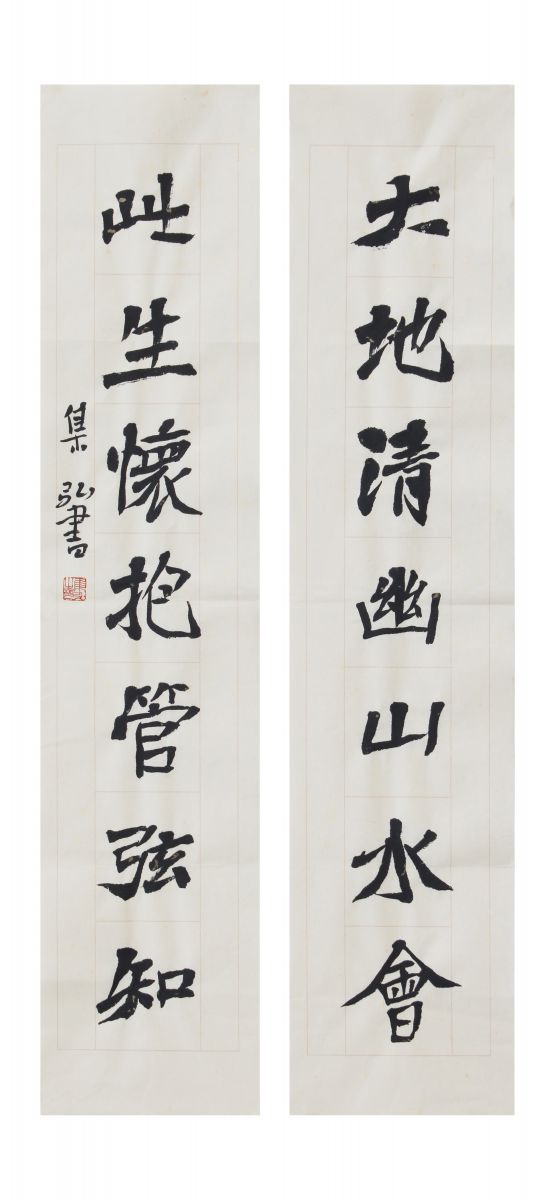 大地清幽山水會
此生懷抱管弦知
集弘書